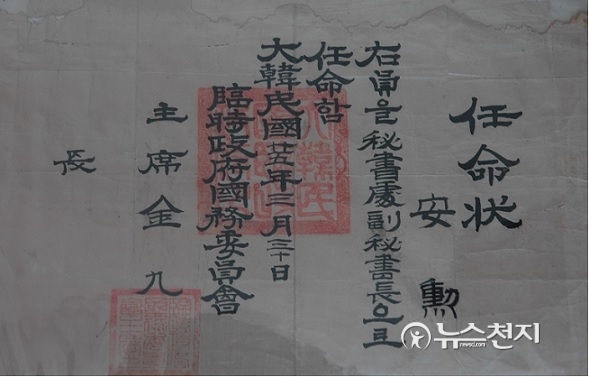 任命状
安 勳
右員을秘書處副秘書長으로
任命함
大韓民國廿五年三月三十日
臨時政府國務委員會
主席金九
長
뉴스천지
newscj.com